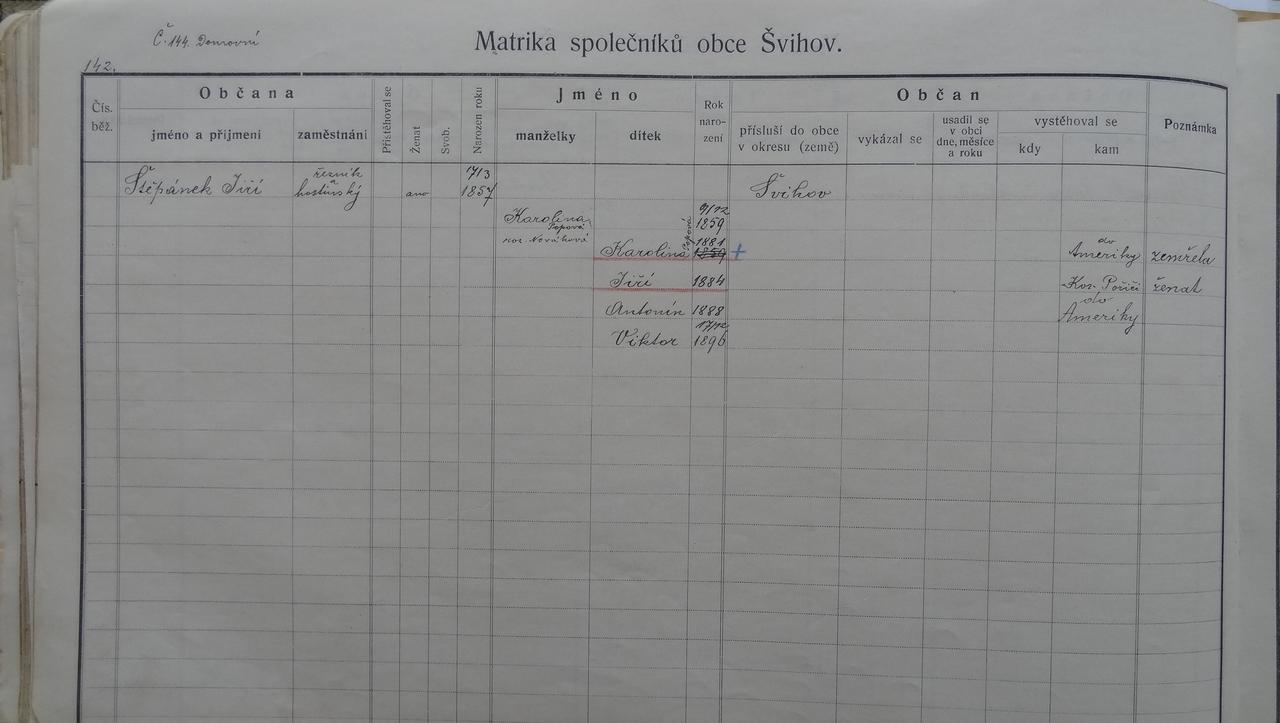 Č. 144. Domovní
Matrika společníků obce Švihov.
142.
Čís. běž.
Občana
jméno a příjmení
zaměstnání
Přistěhoval se
Ženat
Svob.
Narozen roku
Jméno
manželky
dítek
Rok naro- zení
Občan
přísluší do obce v okresu (země)
vykázal se
usadil se v obci dne, měsíce a roku
vystěhoval se
kdy
kam
Poznámka
Štěpánek Jiří
řezník a hostinský
ano
7/3 1857
Švihov
Karolina
9/12 1859
Popová
roz. Nováková
Karolina
Popová
1881
1859
+
do Ameriky
zemřela
Jiří
1884
Kor. Poříčí
ženat
Antonín
1888
do Ameriky
Viktor
17/12 1896